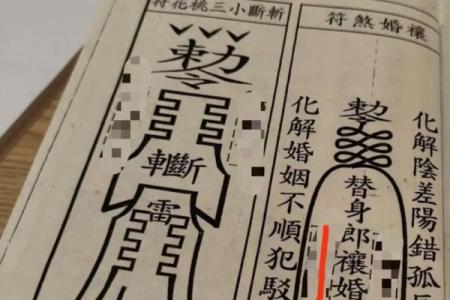 禳婚煞符
化解陰差陽錯孤
勅令
替身郎禳婚
化解婚姻不順犯駁
斬斷小三桃花符
勅令
雷